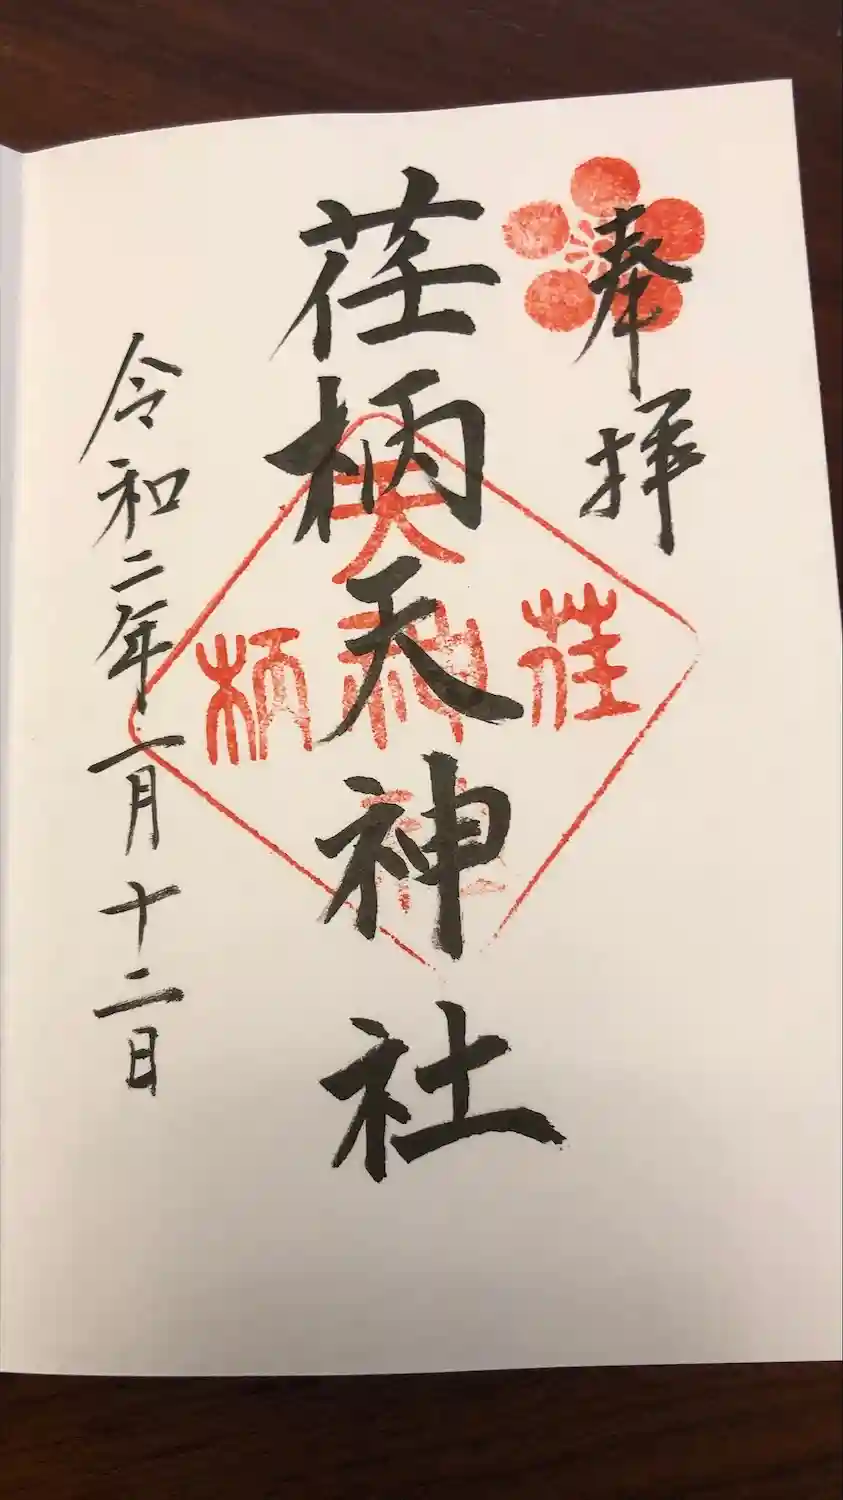 奉拝
荏柄天神社
令和二年一月十二日
荏
天神社
柄